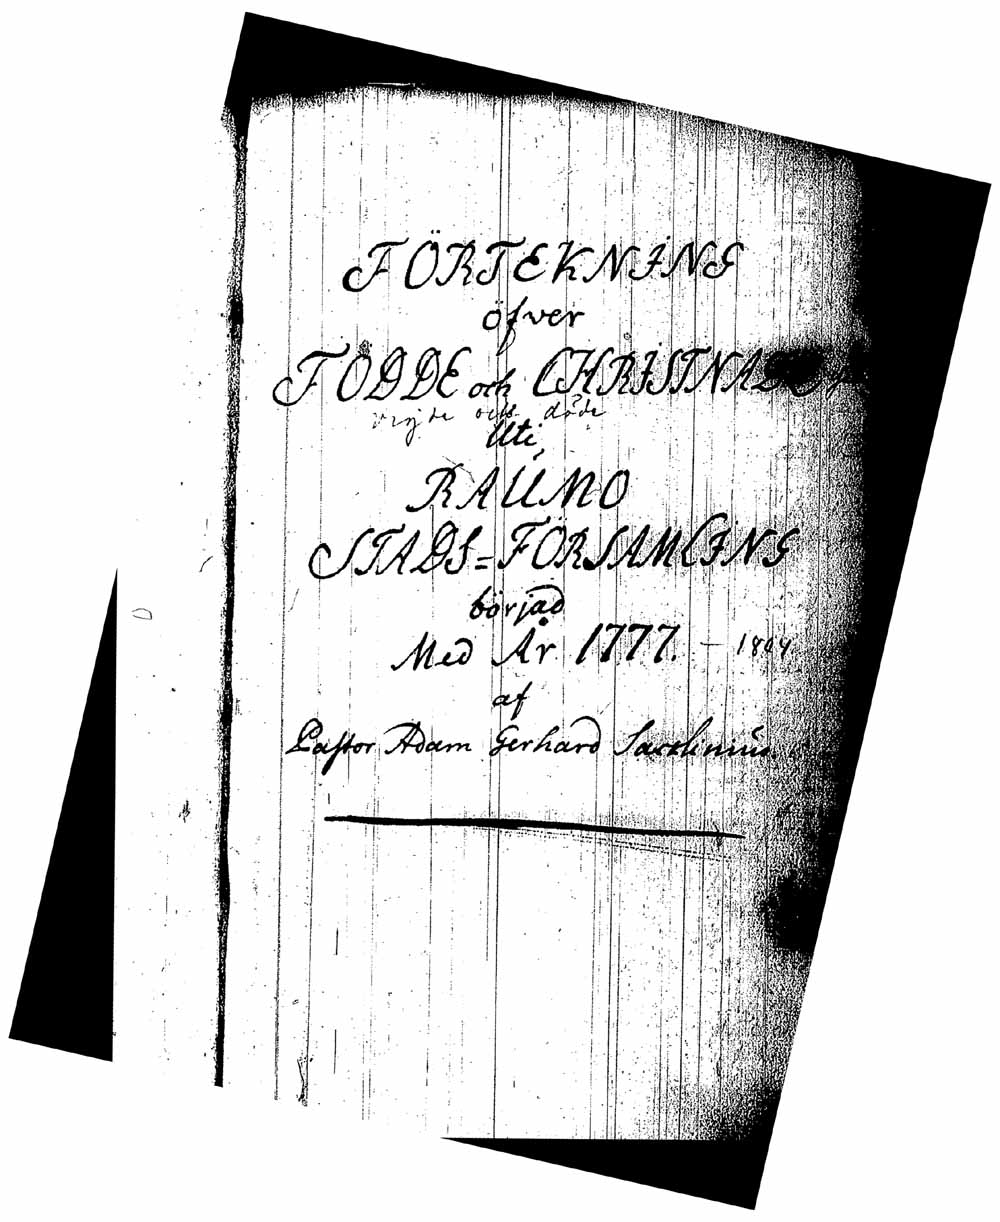 FÖRTEKNING
öfver
FÖDDE och CHRISTNADE
vigde och döde
Uti
RAUMO
STADS=FÖRSAMLING
börjad
Med År 1777. – 1804
af
Pastor Adam Gerhard